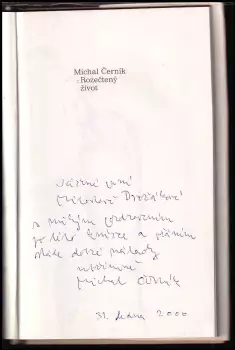 Michal Černík
Rozečtený
život
Vážené paní
Drožákové
s milým pozdravem
po této knížce a přáním
stále dobré nálady
upřímně
Michal Černík
31. ledna 2000